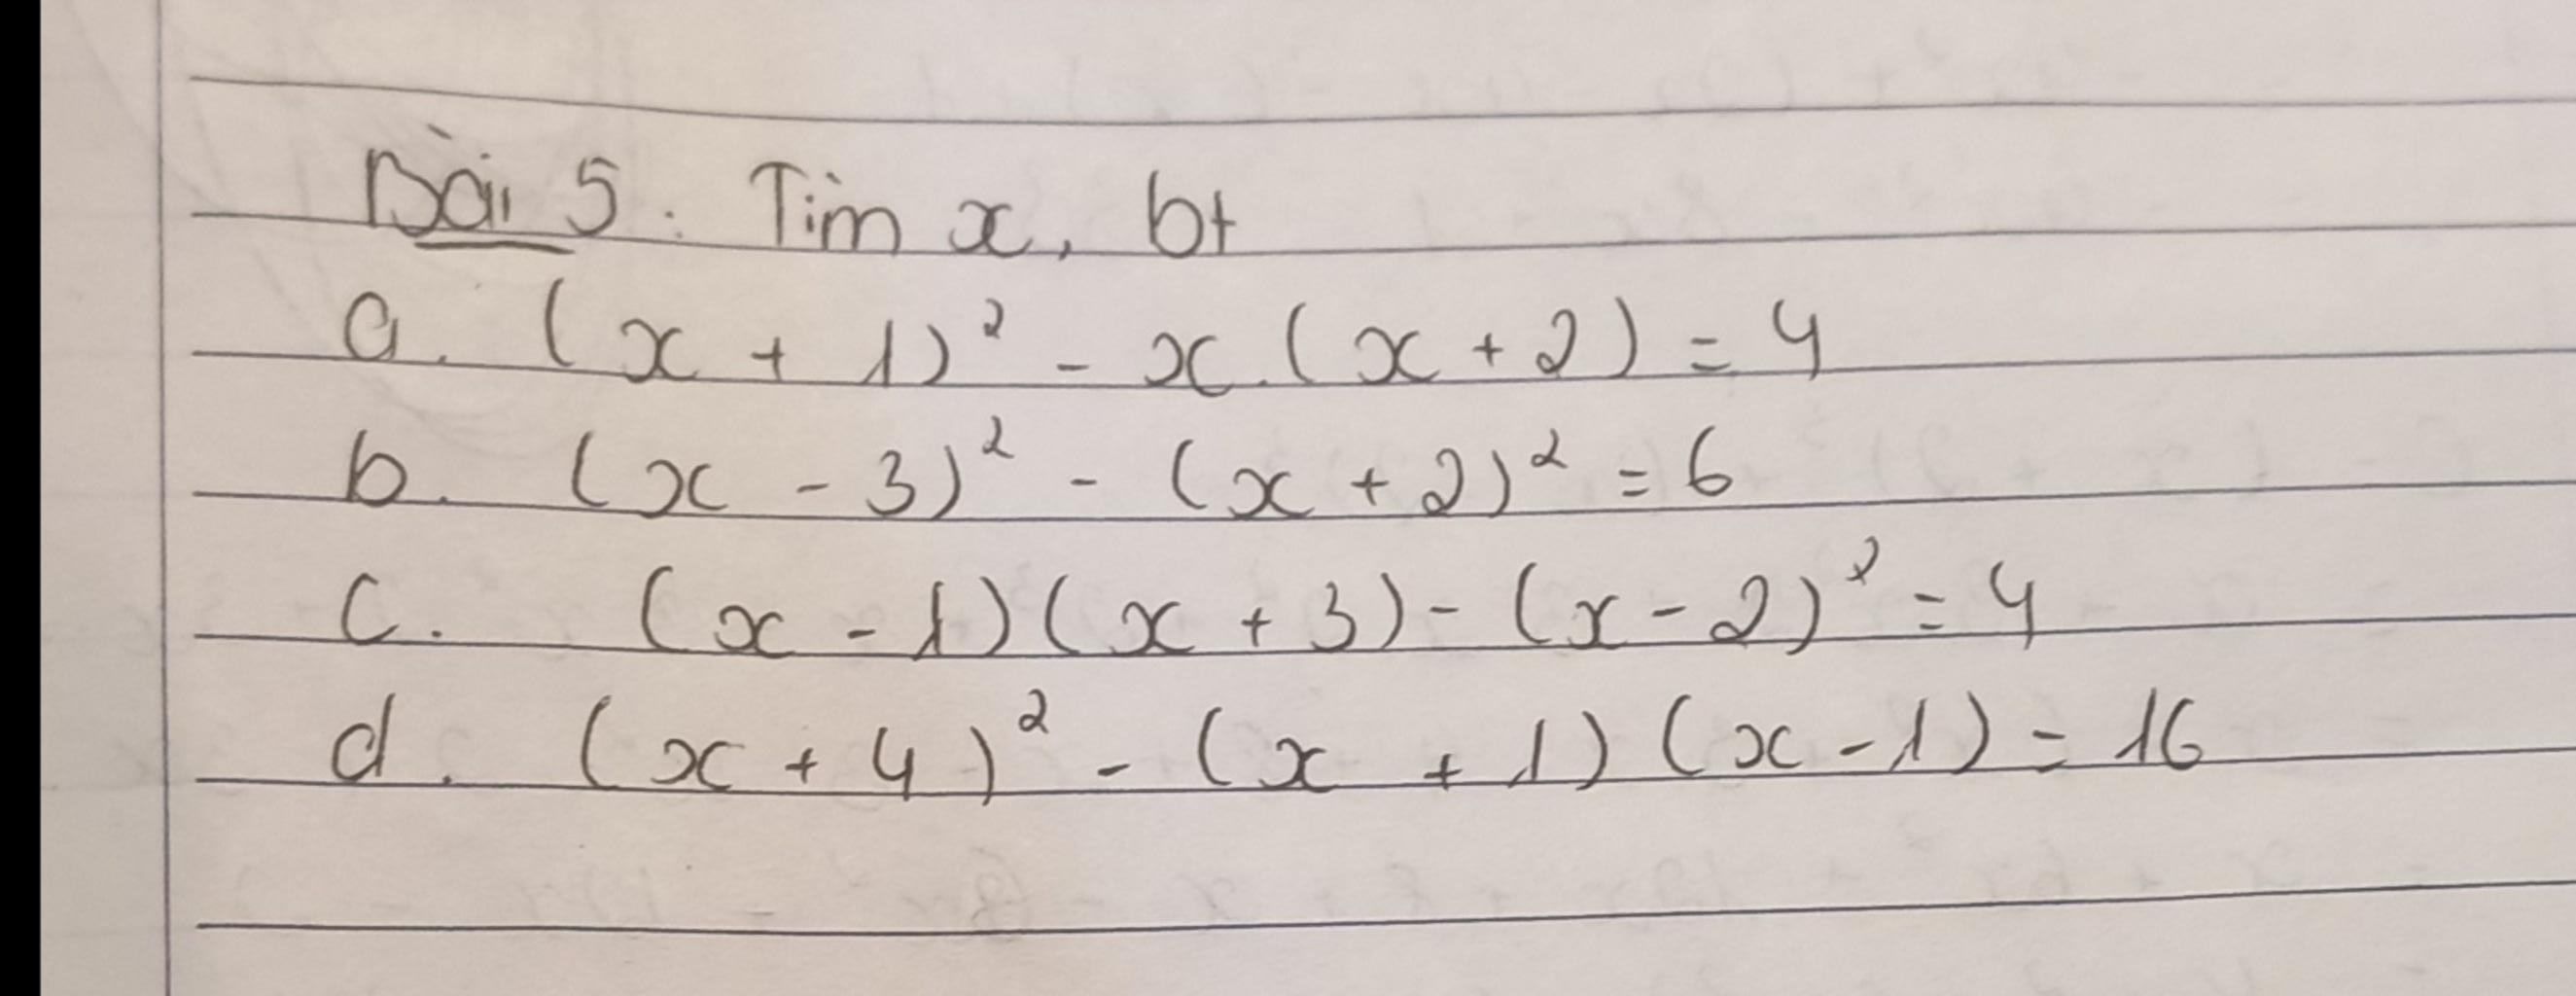 Bài 5: Tìm x, bt
a. (x + 1)² - x.(x + 2) = 4
b. (x - 3)² - (x + 2)² = 6
c. (x - 1)(x + 3) - (x - 2)² = 4
d. (x + 4)² - (x + 1)(x - 1) = 16